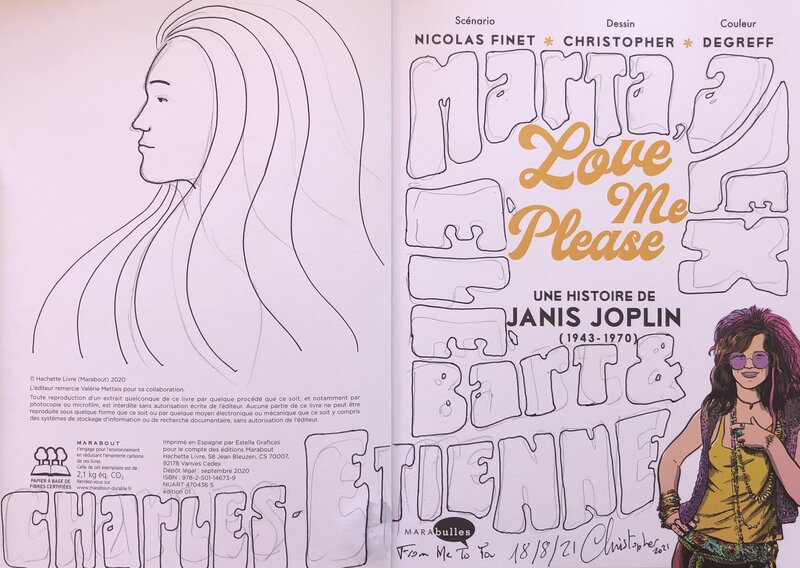 © Hachette Livre (Marabout) 2020
L'éditeur remercie Valérie Mettais pour sa collaboration.
Toute reproduction d'un extrait quelconque de ce livre par quelque procédé que ce soit, et notamment par
photocopie ou microfilm, est interdite sans autorisation écrite de l'éditeur. Aucune partie de ce livre ne peut être
reproduite sous quelque forme que ce soit ou par quelque moyen électronique ou mécanique que ce soit y compris
des systèmes de stockage d'information ou de recherche documentaire, sans autorisation de l'éditeur.
PAPIER À BASE DE
FIBRES CERTIFIÉES
MARABOUT
s'engage pour l'environnement
en réduisant l'empreinte carbone
de ses livres.
Celle de cet exemplaire est de
2,1 kg éq. CO2
Rendez-vous sur
www.marabout-durable.fr
Imprimé en Espagne par Estella Graficas
pour le compte des éditions Marabout
Hachette Livre, 58 Jean Bleuzen, CS 70007,
92178 Vanves Cedex
Dépôt légal : septembre 2020
ISBN : 978-2-501-14673-9
NUART 470436 5
édition 01
Scénario Dessin Couleur
NICOLAS FINET * CHRISTOPHER * DEGREFF
Marta,
aLEX
Love
Me
Please
UNE HISTOIRE DE
JANIS JOPLIN
(1943-1970)
Bart &
CHarLES-ETIENNE
MARAbulles
From Me To You 18/8/21 Christopher
2021